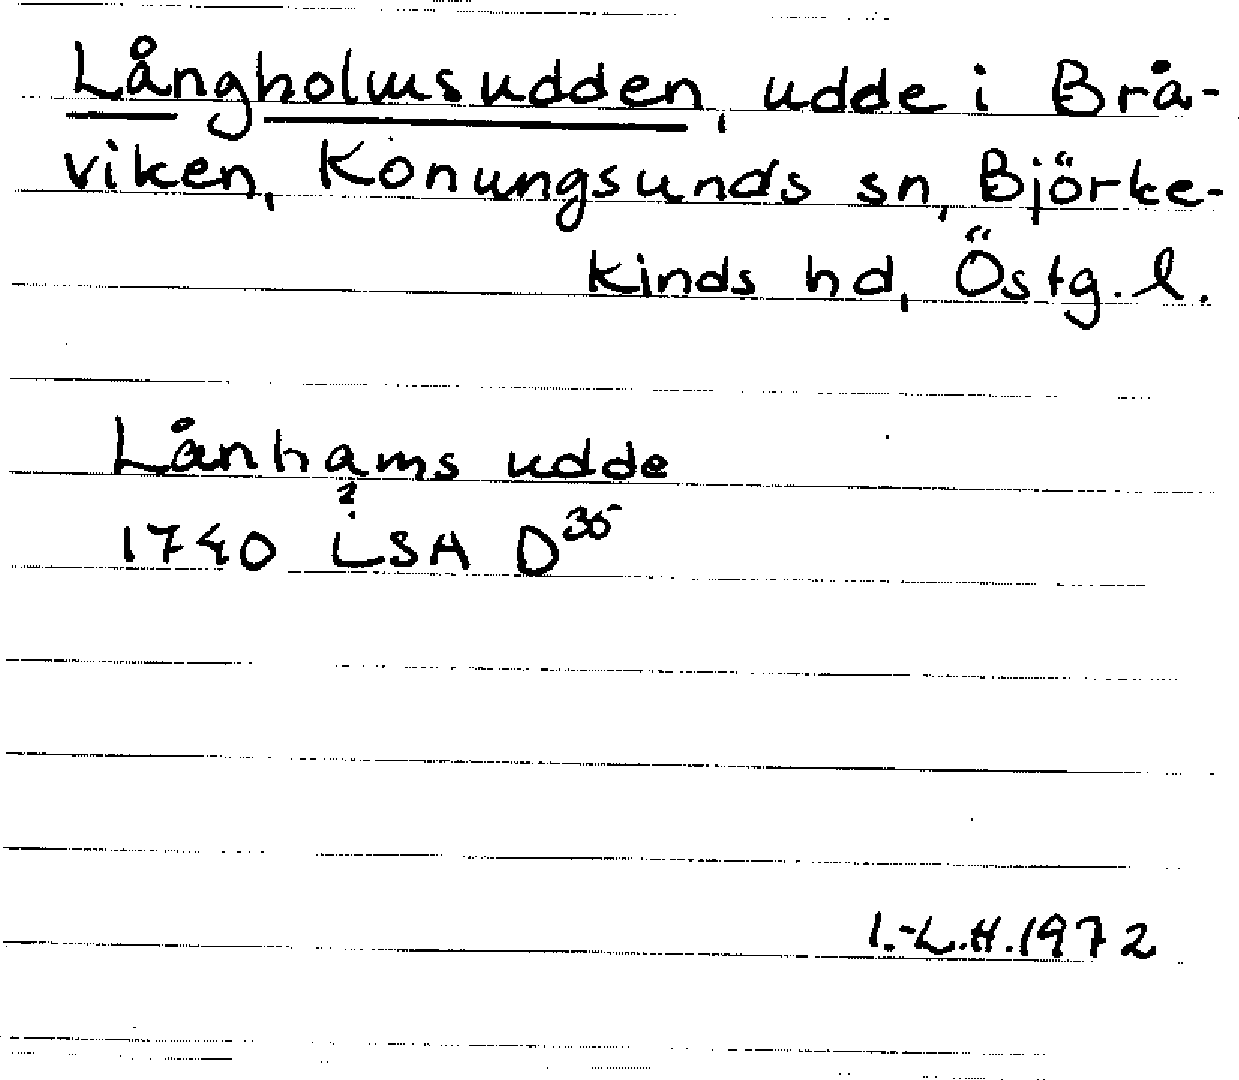 Långholmsudden, udde i Brå-
viken, Konungsunds sn, Björke-
kinds hd, Östg. l.
Lånhams udde
?
1740 LSA D35
I.-L.H. 1972